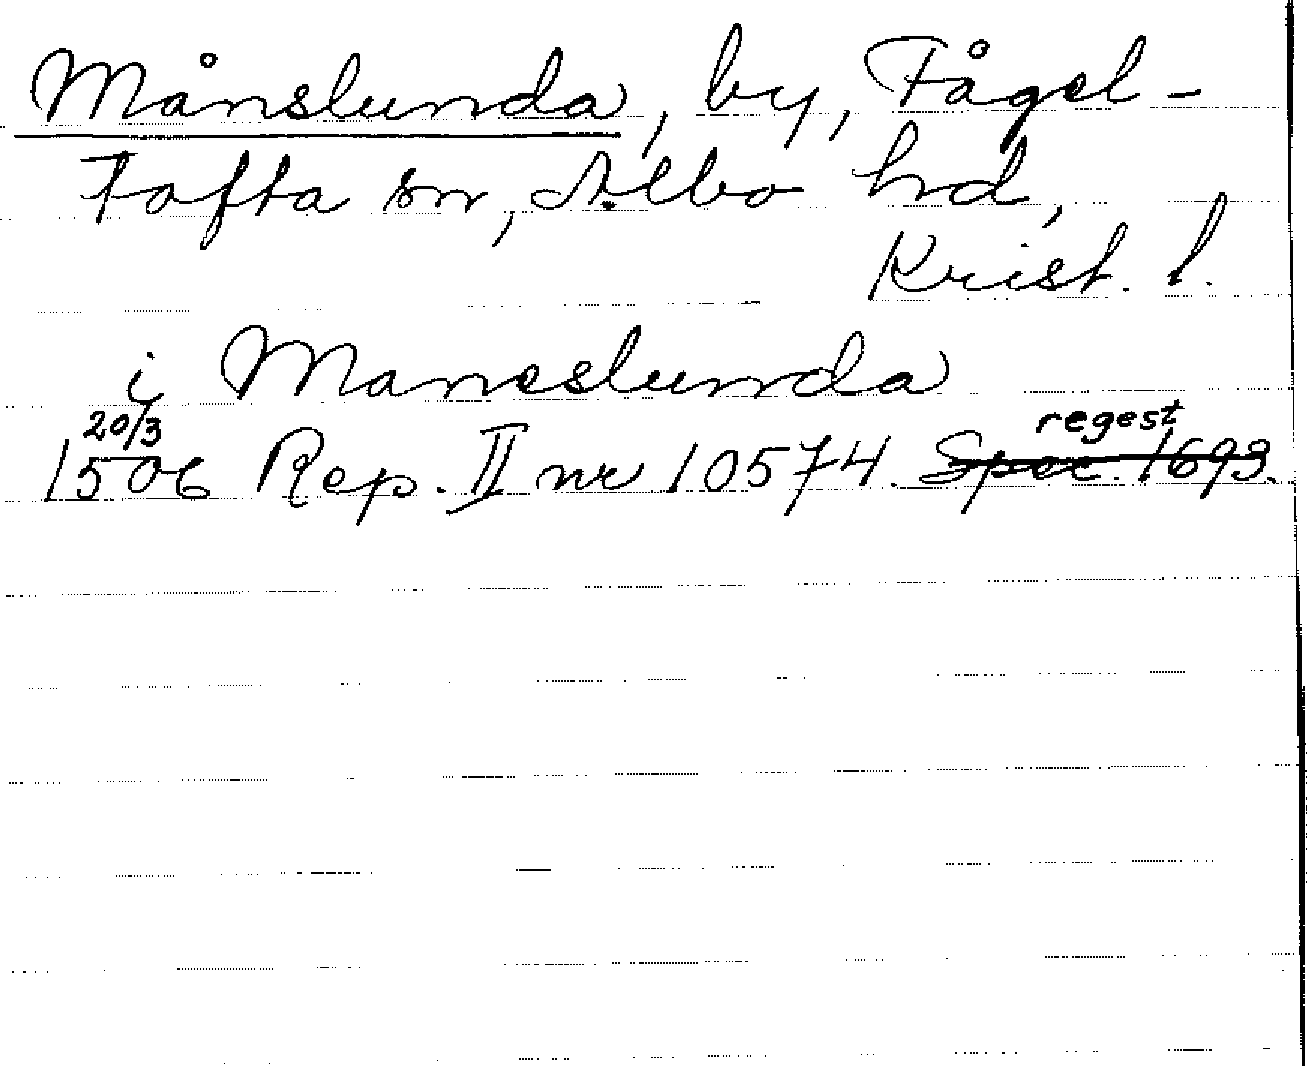 Månslunda, by, Fågel-
tofta sn, Albo hd,
Krist. l.
i Maneslunda
20/3 regest
1506 Rep. II nr 10574. Spec. 1693.